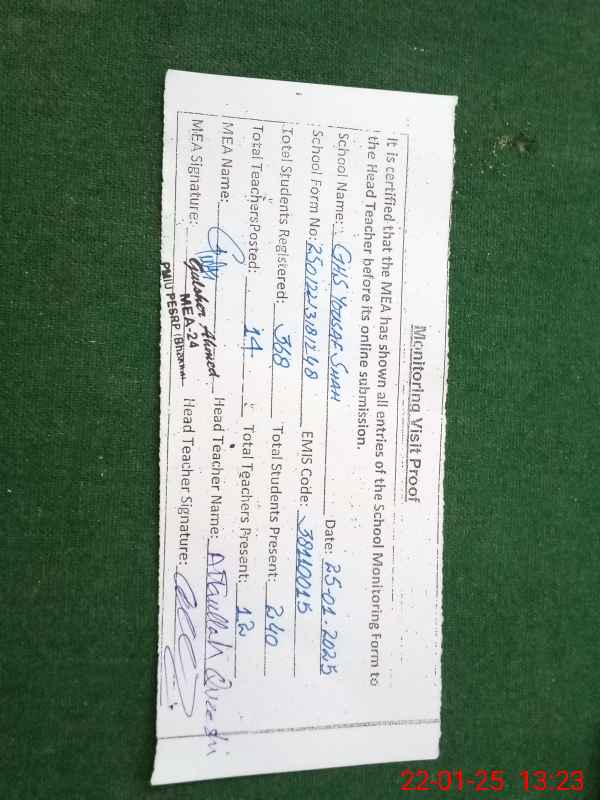 Monitoring Visit Proof
It is certified that the MEA has shown all entries of the School Monitoring Form to
the Head Teacher before its online submission.
School Name: GHS YOUSAF SHAH Date: 25-01-2025
School Form No: EMIS Code: 38110015
Total Students Registered: 368 Total Students Present: 240
Total TeachersPosted: 14 Total Teachers Present: 12
MEA Name: Gulsher Ahmed Head Teacher Name: Attaullah Qureshi
MEA-24
MEA Signature: Head Teacher Signature:
PMIU PESRP (Bhakkar
22-01-25 13:23